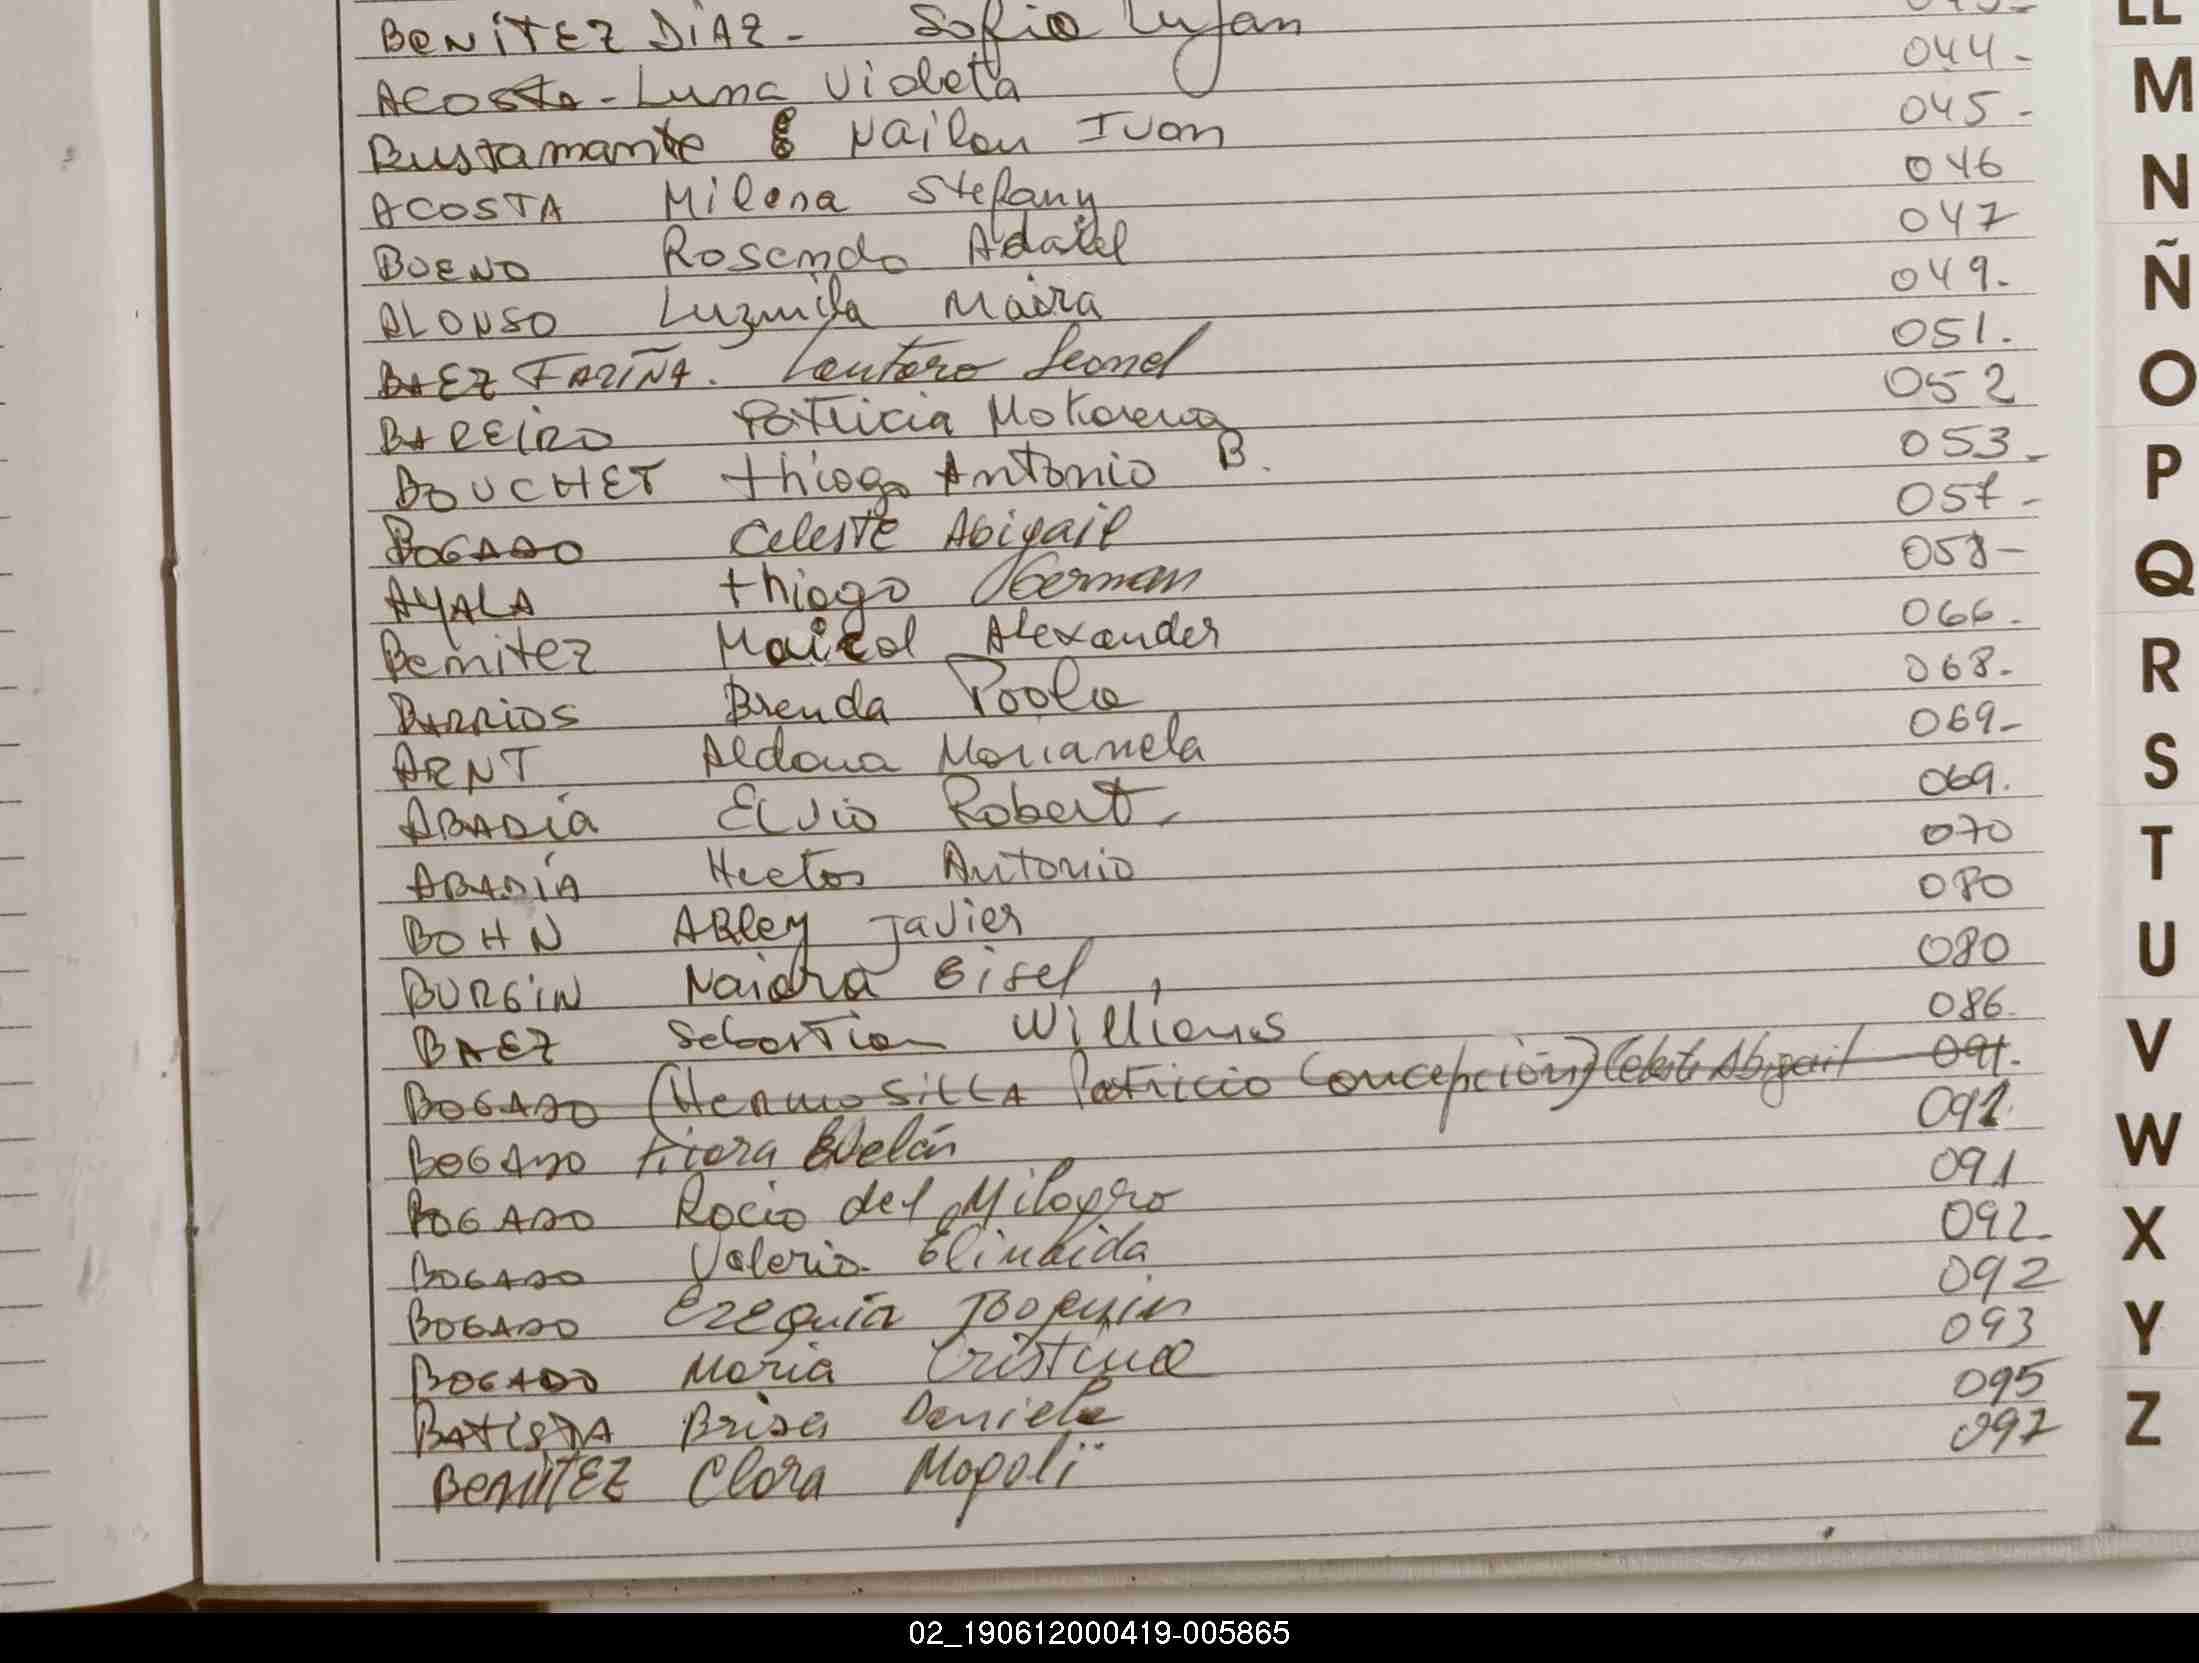 BENÍTEZ DÍAZ - Sofia Lujan
ACOSTA - Luna Violeta 044 -
Bustamante Nailon Ivan 045 -
ACOSTA Milena Stefany 046
BUENO Rosendo 047
ALONSO Luzmila Maira 049.
BAEZ FARIÑA. Lautaro Leonel 051.
BAREIRO Patricia Makarena 052
BOUCHET thiago Antonio B. 053 -
BOGADO Celeste Abigail 057 -
AYALA thiago German 058 -
Benitez Maicol Alexander 066.
BARRIOS Brenda Paola 068.
ARNT Aldana Marianela 069 -
ABADIA Elvio Robert 069.
ABADÍA Hector Antonio 070
BOHN ARley Javier 080
BURGIN Naiara Gisel 080
BAEZ Sebastian Williams 086.
BOGADO (HERMOSILLA Patricia Concepción) Celeste Abigail 091.
BOGADO 091
BOGADO Rocio del Milagro 091
BOGADO Valeria 092
BOGADO Joaquin 092
BOGADO Maria Cristina 093
BATISTA Brisa Daniela 095
BENITEZ Clara Magali 097
LL
M
N
Ñ
O
P
Q
R
S
T
U
V
W
X
Y
Z
02_190612000419-005865